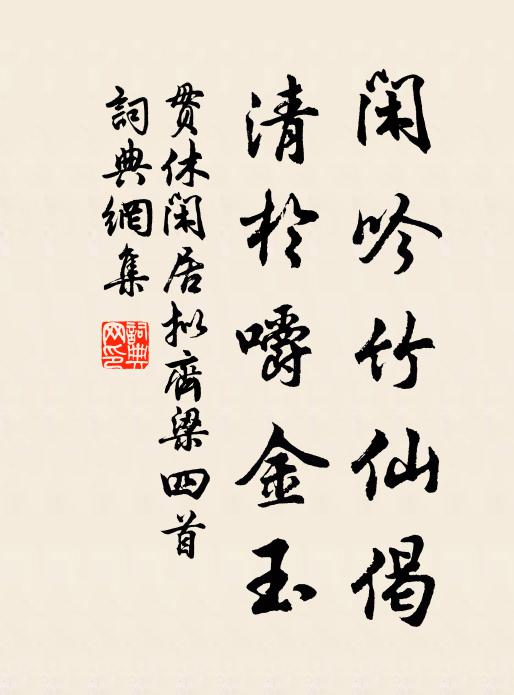 閑吟竹仙偈
清於嚼金玉
貫休閑居拟齊梁四首
詞典網集
詞典网印